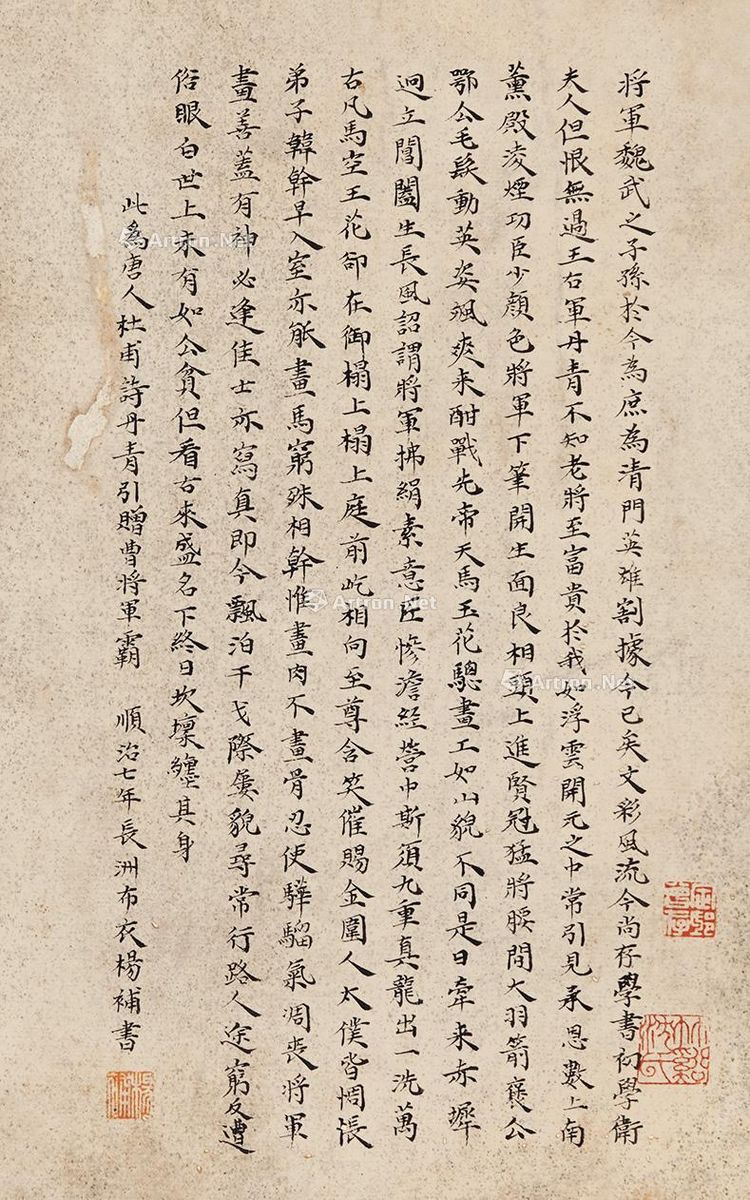 将軍魏武之子孫於今為庶為清門英雄割據今已矣文彩風流今尚存學書初學衛
夫人但恨無過王右軍丹青不知老將至富貴於我如浮雲開元之中常引見承恩數上南
薰殿淩煙功臣少顔色將軍下筆開生面良相頭上進賢冠猛將腰間大羽箭褒公
鄂公毛髮動英姿颯爽来酣戰先帝天馬玉花驄畫工如山貌不同是日牽来赤墀
迥立閶闔生長風詔謂將軍拂絹素意匠慘澹經營中斯須九重真龍出一洗萬
古凡馬空玉花卻在御榻上榻上庭前屹相向至尊含笑催賜金圉人太僕皆惆悵
弟子韓幹早入室亦能畫馬窮殊相幹惟畫肉不畫骨忍使驊騮氣凋喪將軍
畫善蓋有神必逢佳士亦寫真即今飄泊干戈際屢貌尋常行路人途窮反遭
俗眼白世上未有如公貧但看古來盛名下終日坎壈纏其身
此為唐人杜甫詩丹青引贈曹將軍霸 順治七年長洲布衣楊補書
Artron.Net
Artron.Net
Artron.Net
Artron.Net